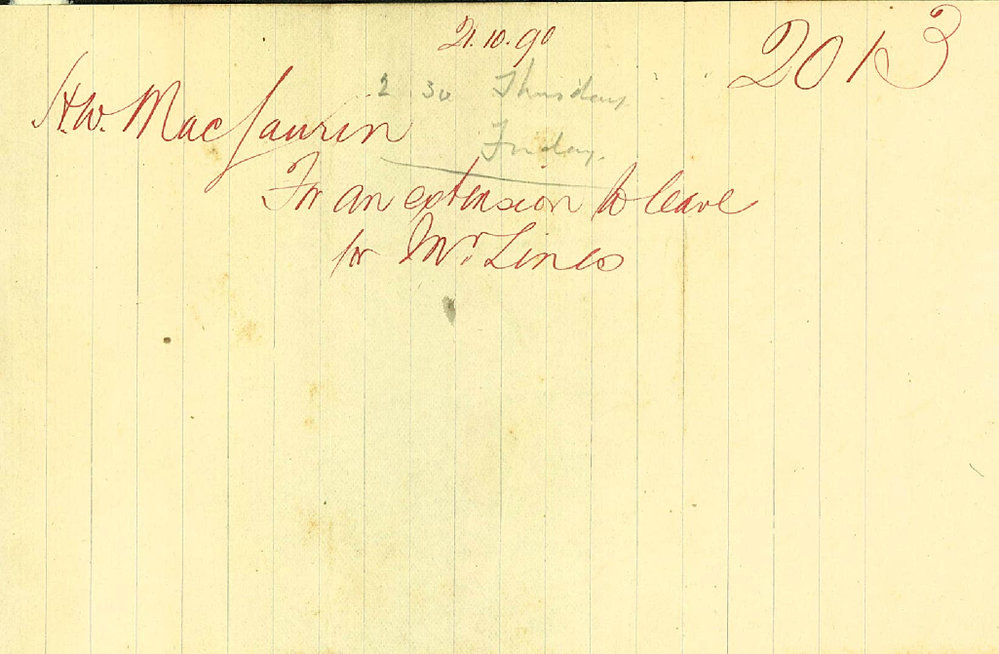 21.10.90
2013
2 30 Thursday
H.W. MacLaurin
Friday.
For an extension to leave
for Mr. Lines